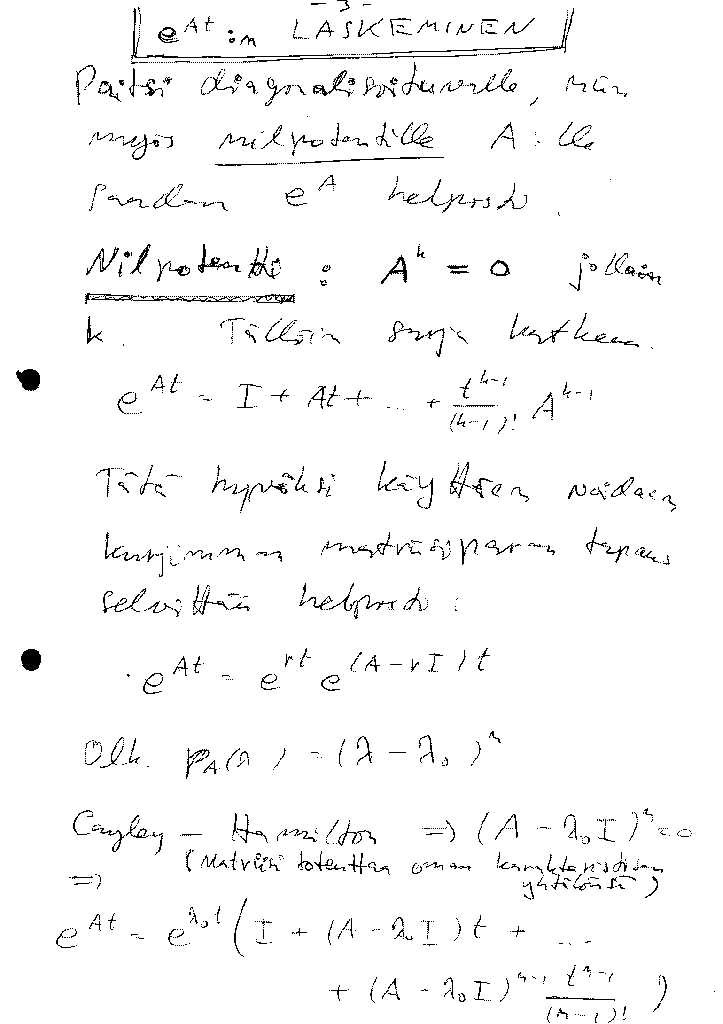 - 3 -
e^{At}:n LASKEMINEN
Paitsi diagonalisoituvalle, niin
myös nilpotentille A:lle
saadaan e^A helposti.
Nilpotentti : A^k = 0 jollain
k. Tällöin sarja katkeaa.
e^{At} = I + At + ... + \frac{t^{k-1}}{(k-1)!} A^{k-1}
Tätä hyväksi käyttäen voidaan
kurjimman matriisiparan tapaus
selvittää helposti :
e^{At} = e^{rt} e^{(A-rI)t}
Olk. p_A(λ) = (λ - λ_0)^n
Cayley - Hamilton ⇒ (A - λ_0 I)^n = 0
(Matriisi toteuttaa oman karakteristisen
⇒ yhtälönsä)
e^{At} = e^{λ_0 t} ( I + (A - λ_0 I) t + ...
+ (A - λ_0 I)^{n-1} \frac{t^{n-1}}{(n-1)!} )